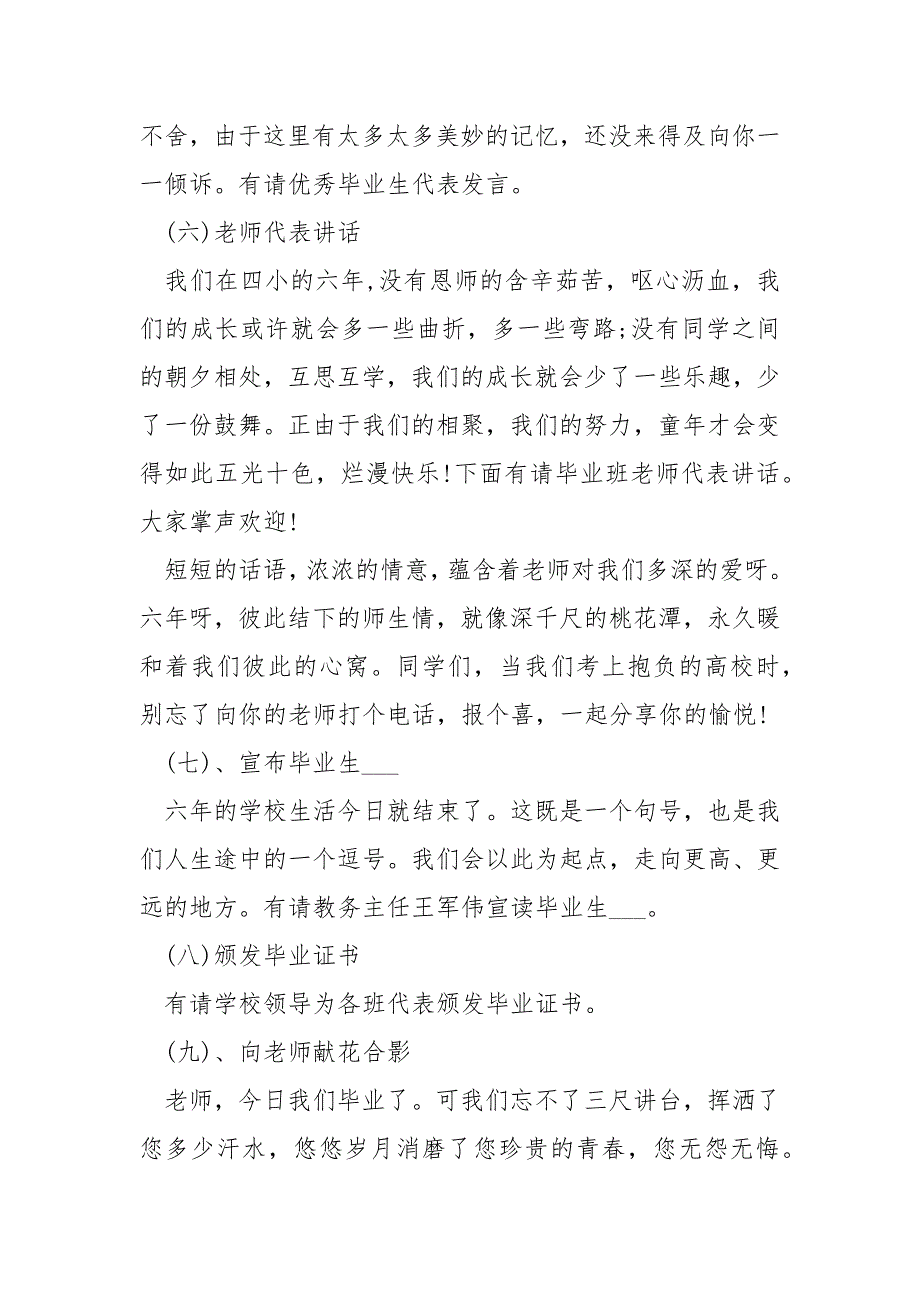 不舍，由于这里有太多太多美妙的记忆，还没来得及向你一
一倾诉。有请优秀毕业生代表发言。
(六)老师代表讲话
我们在四小的六年,没有恩师的含辛茹苦，呕心沥血，我
们的成长或许就会多一些曲折，多一些弯路;没有同学之间
的朝夕相处，互思互学，我们的成长就会少了一些乐趣，少
了一份鼓舞。正由于我们的相聚，我们的努力，童年才会变
得如此五光十色，烂漫快乐!下面有请毕业班老师代表讲话。
大家掌声欢迎!
短短的话语，浓浓的情意，蕴含着老师对我们多深的爱呀。
六年呀，彼此结下的师生情，就像深千尺的桃花潭，永久暖
和着我们彼此的心窝。同学们，当我们考上抱负的高校时，
别忘了向你的老师打个电话，报个喜，一起分享你的愉悦!
(七)、宣布毕业生___
六年的学校生活今日就结束了。这既是一个句号，也是我
们人生途中的一个逗号。我们会以此为起点，走向更高、更
远的地方。有请教务主任王军伟宣读毕业生___。
(八)颁发毕业证书
有请学校领导为各班代表颁发毕业证书。
(九)、向老师献花合影
老师，今日我们毕业了。可我们忘不了三尺讲台，挥洒了
您多少汗水，悠悠岁月消磨了您珍贵的青春，您无怨无悔。